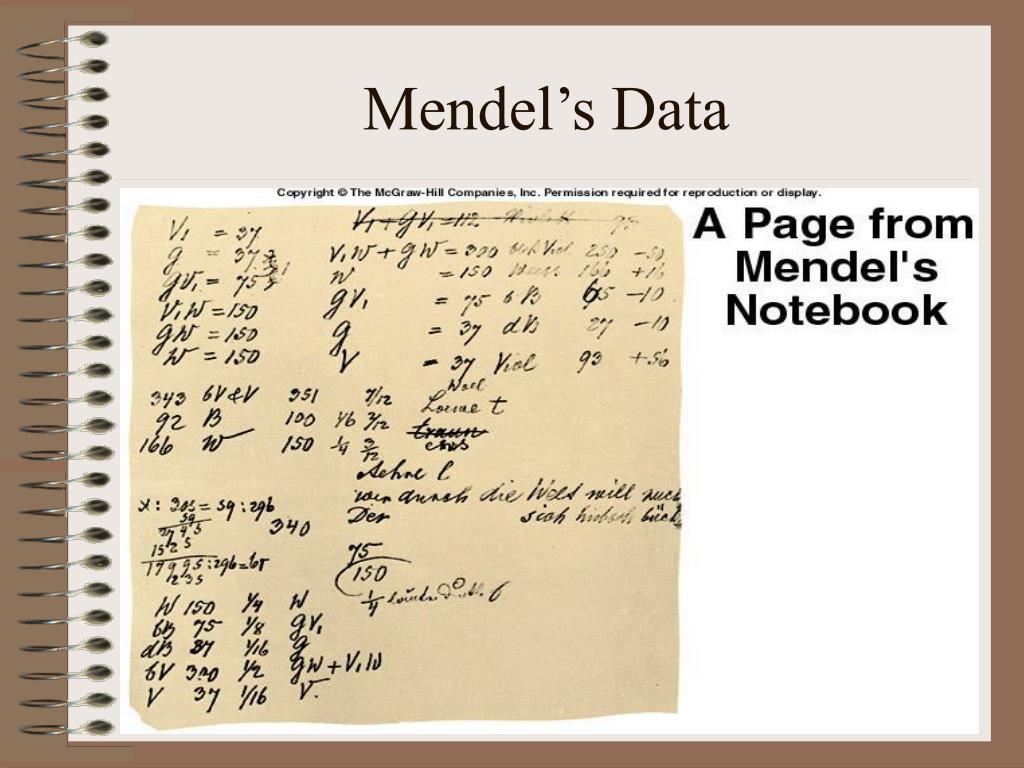 Mendel’s Data
Copyright © The McGraw-Hill Companies, Inc. Permission required for reproduction or display.
A Page from
Mendel's
Notebook
V₁ = 37
g = 37
gV₁ = 75
V₁W = 150
gW = 150
W = 150
V₁ + gV₁ = 112
V₁W + gW = 300 250 -50
W = 150 166 +16
gV₁ = 75 6B 65 -10
g = 37 dB 27 -10
V = 37 Viol 93 +56
343 6V&V 351 7/12
92 B 100 1/6 2/12
166 W 150 1/4 3/12
wer durch die Welt will
Der sich
x : 305 = 59 : 296
340
17995:296=65
75
150
1/4
W 150 1/4 W
6B 75 1/8 gV₁
dB 37 1/16 g
6V 300 1/2 gW + V₁W
V 37 1/16 V.